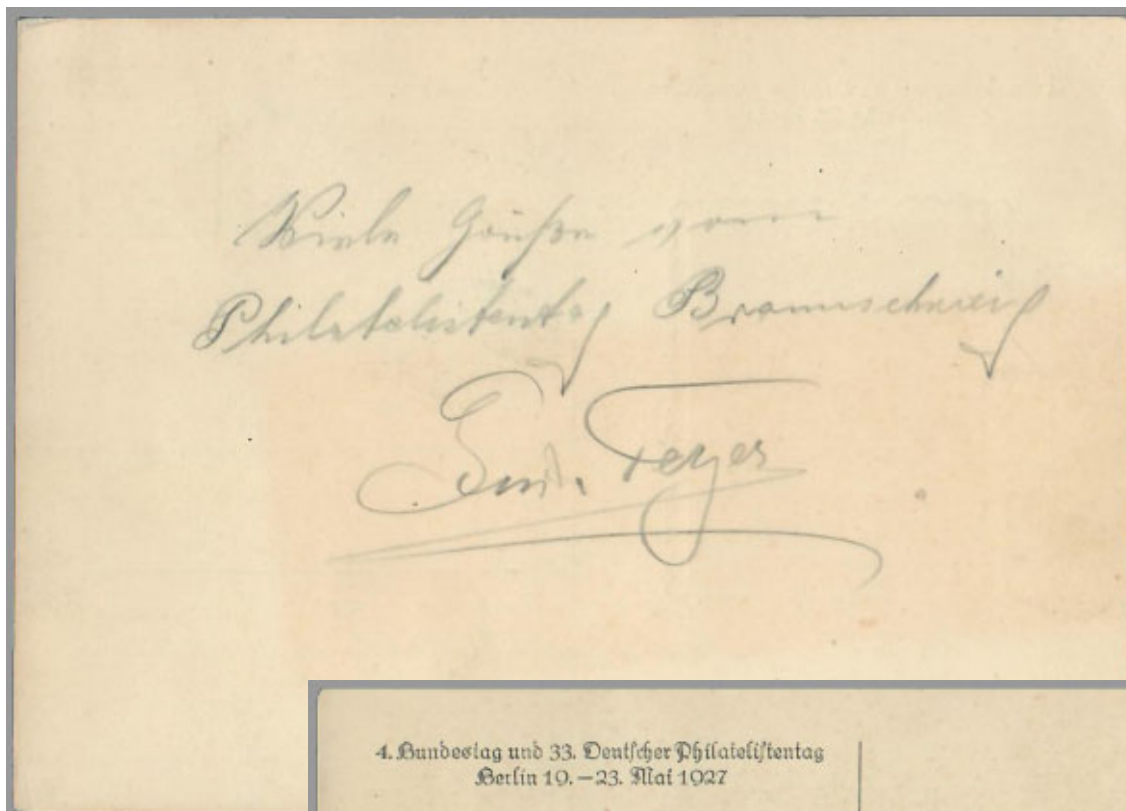 Viele Grüße vom
Philatelistentag Braunschweig
4. Bundestag und 33. Deutscher Philatelistentag
Berlin 19.–23. Mai 1927